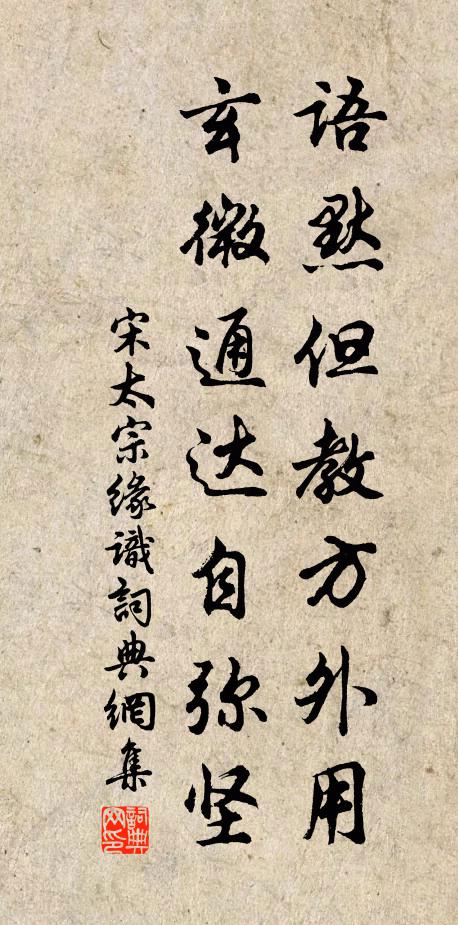 语默但教方外用
玄微通达自弥坚
宋太宗缘識詞典網集
詞典网印